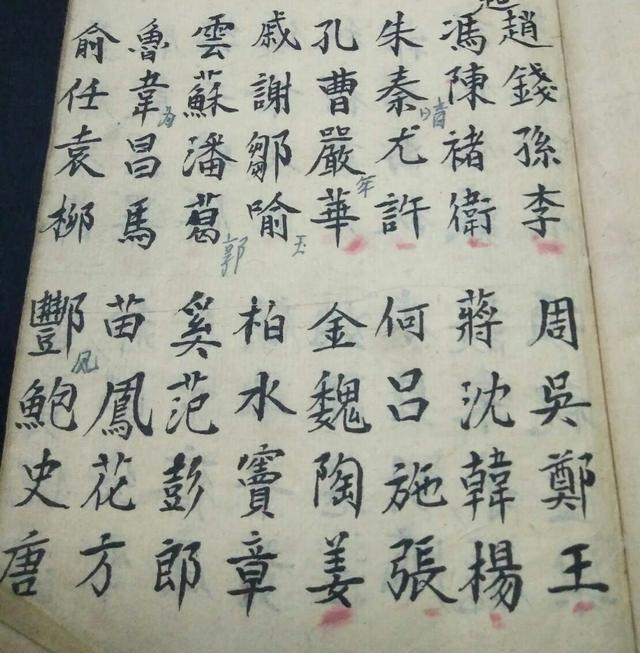 趙錢孫李 周吳鄭王
馮陳褚衛 蔣沈韓楊
朱秦尤許 何呂施張
孔曹嚴華 金魏陶姜
戚謝鄒喻 柏水竇章
雲蘇潘葛 奚范彭郎
魯韋昌馬 苗鳳花方
俞任袁柳 酆鮑史唐
郭